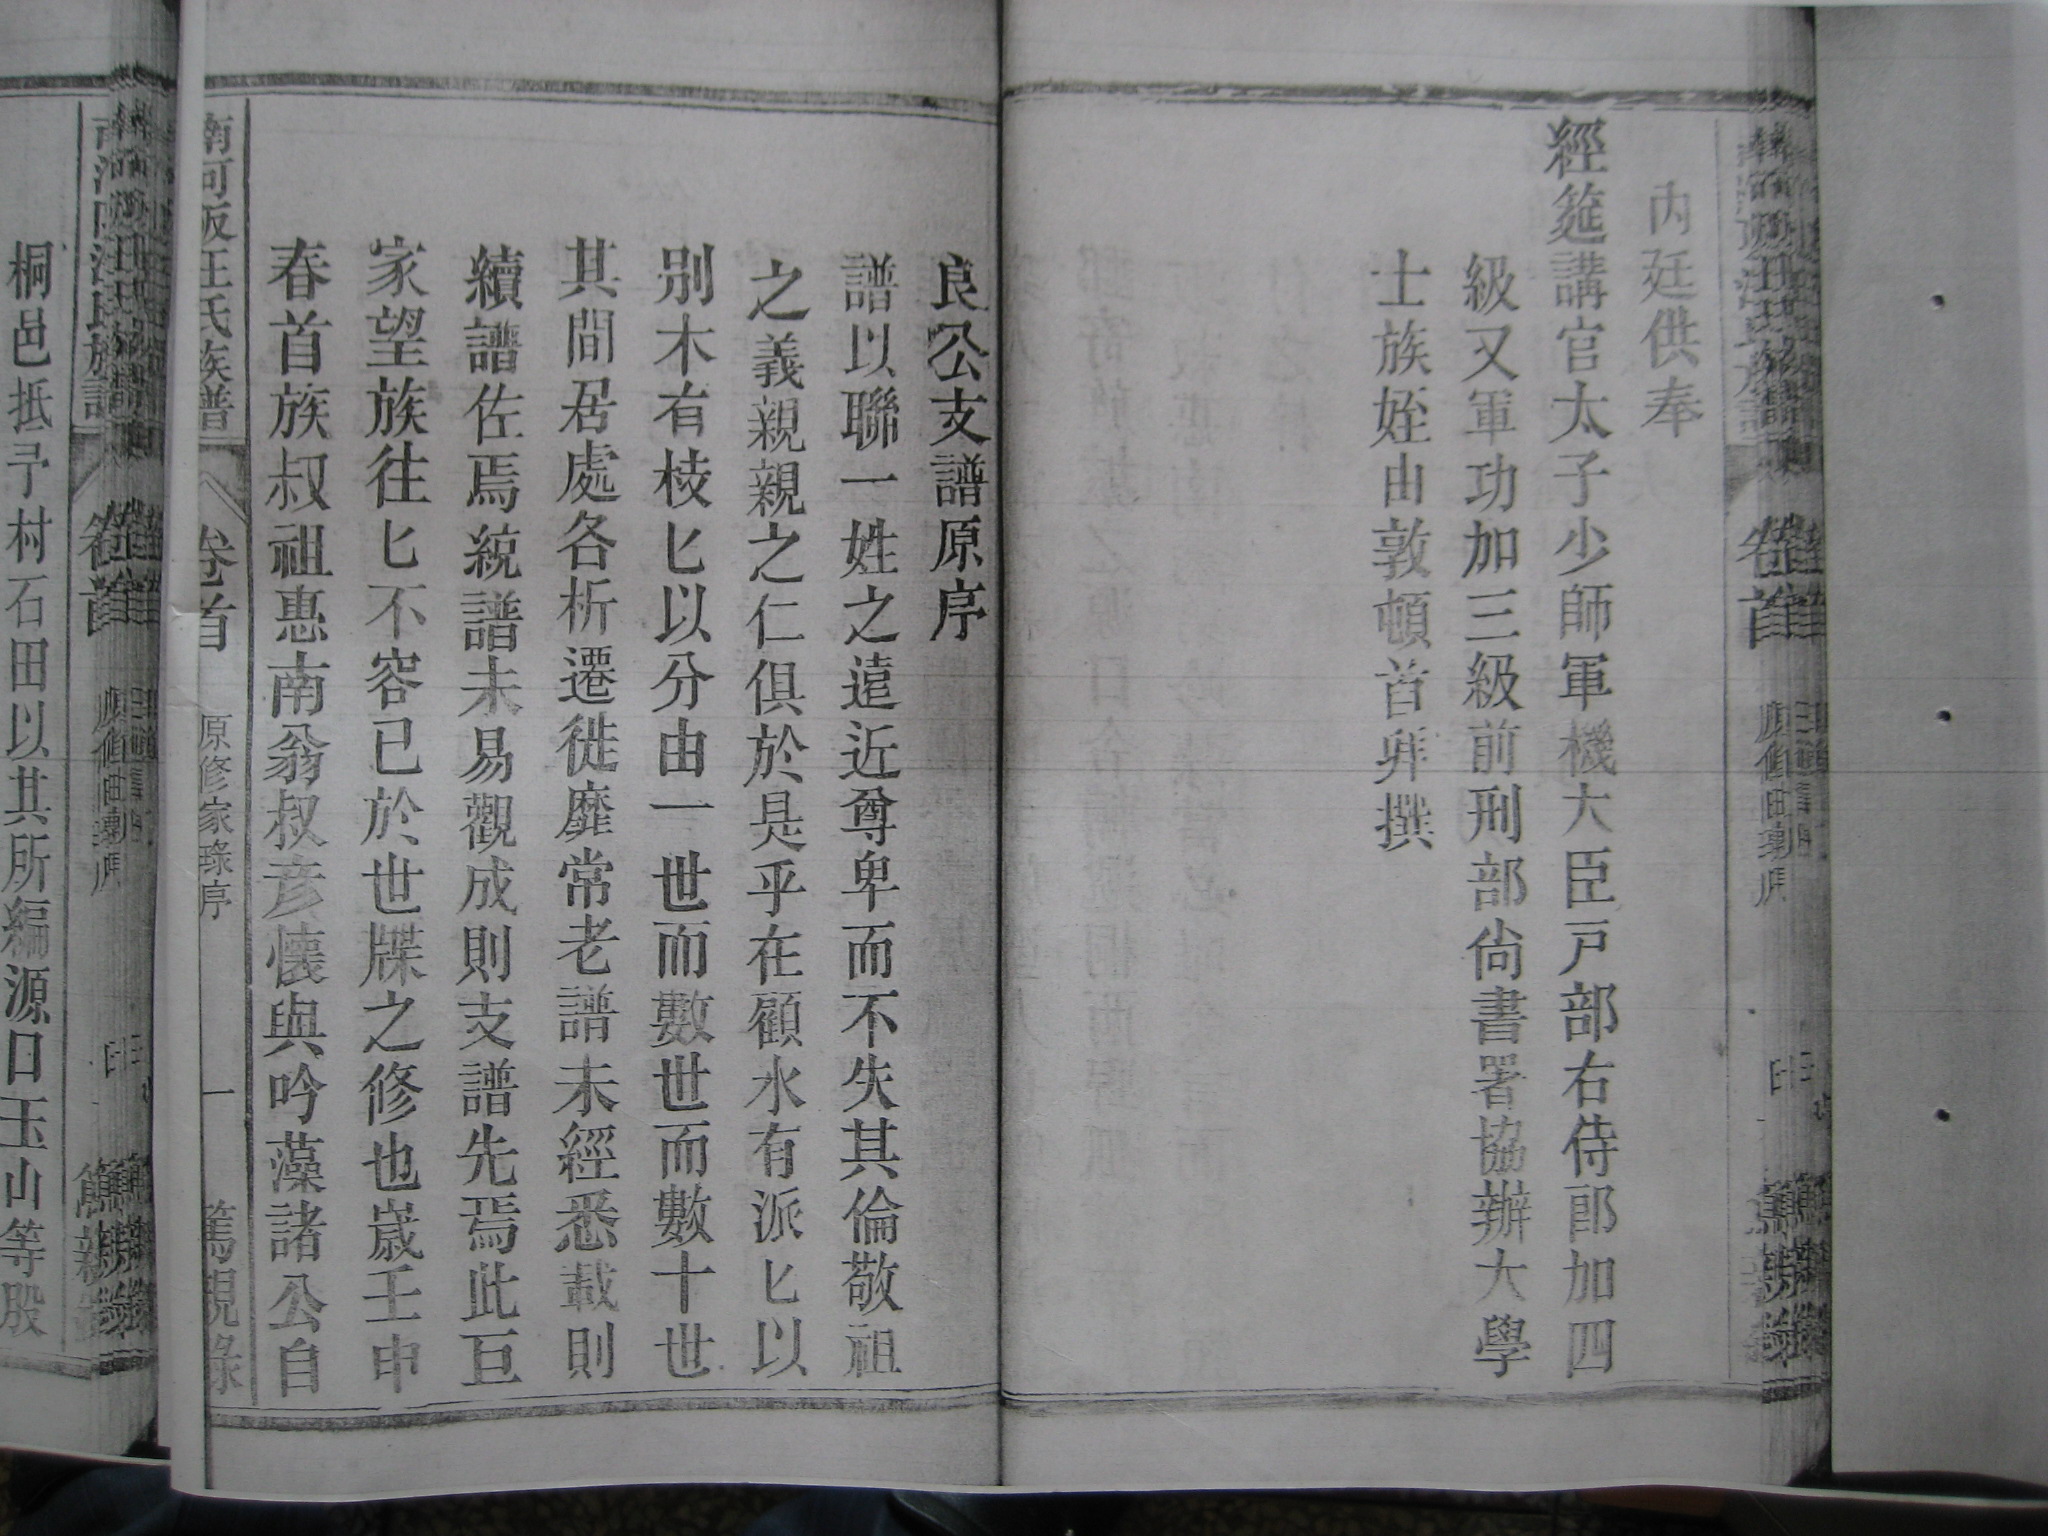 內廷供奉
經筵講官太子少師軍機大臣戸部右侍郎加四
級又軍功加三級前刑部尙書署協辦大學
士族姪由敦頓首拜撰
良公支譜原序
譜以聯一姓之遠近尊卑而不失其倫敬祖
之義親親之仁俱於是乎在顧水有派匕以
別木有枝匕以分由一世而數世而數十世
其間居處各析遷徙靡常老譜未經悉載則
續譜佐焉統譜未易觀成則支譜先焉此巨
家望族往匕不容已於世牒之修也歲壬申
春首族叔祖惠南翁叔彦懐與吟藻諸公自
南河阪汪氏族譜
卷首
原修家琭序
一
篤親錄
桐邑抵予村石田以其所編源口玉山等殷